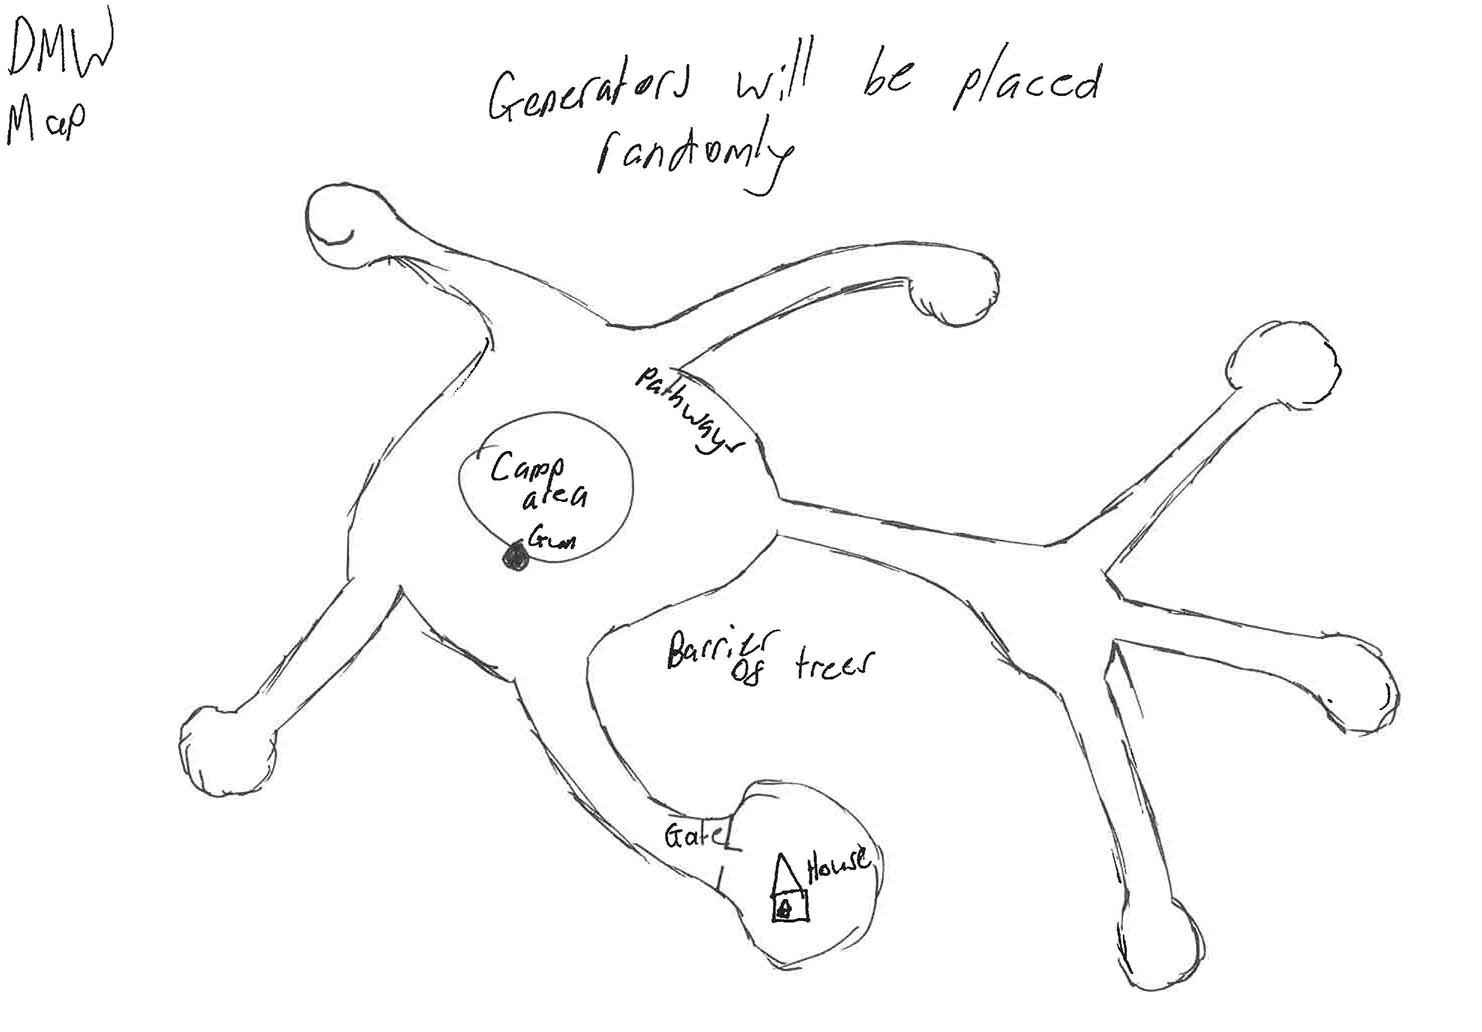 DMW
Map
Generators will be placed
randomly
Pathways
Camp
area
Gun
Barrier
Of trees
Gate
House